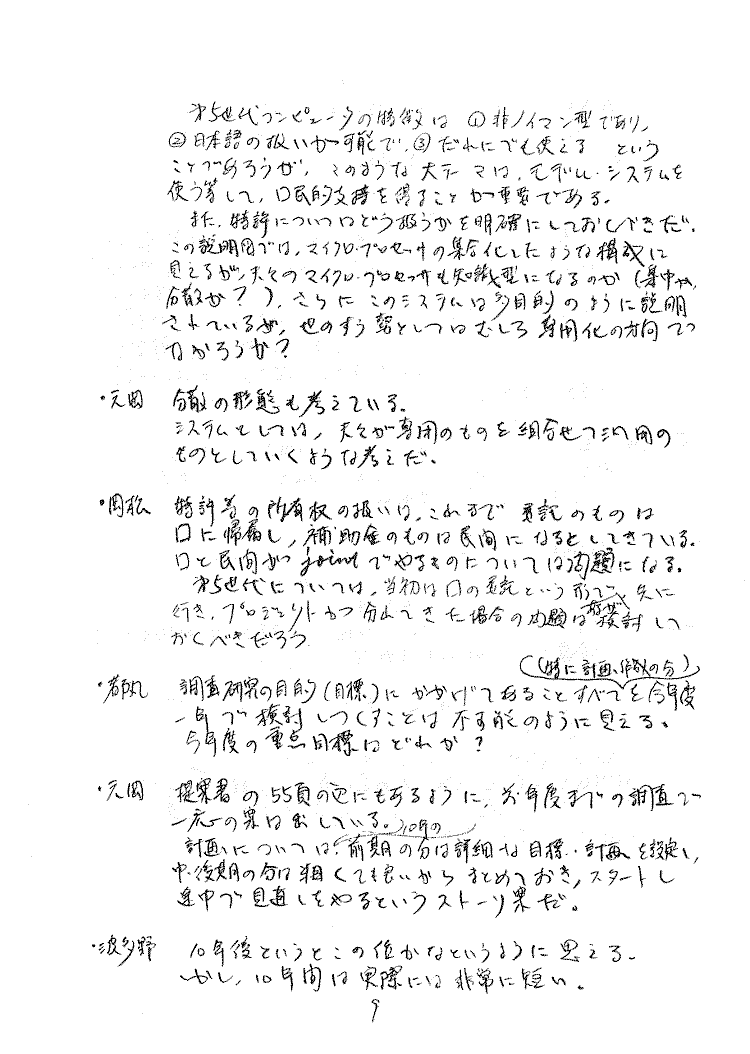 第5世代コンピュータの特徴は ①非ノイマン型であり,
②日本語の扱いが可能で, ③だれにでも使える という
ことであろうが, このような大テーマは, モデル・システムを
使う等して, 口民的支持を得ることが重要である。
また, 特許についてはどう扱うかを明確にしておくべきだ.
この説明図では, マイクロ・プロセッサの集合化したような構成に
見えるが, 夫々のマイクロ・プロセッサも知識型になるのか (集中か,
分散か?). さらにこのシステムは多目的のように説明
されているが, 世のすう勢としてはむしろ専用化の方向で
なかろうか?
・元岡 分散の形態も考えている。
システムとしては, 夫々が専用のものを組合せて汎用の
ものとしていくような考えだ.
・岡松 特許等の所有権の扱いは, これまで 委託のものは
口に帰属し, 補助金のものは民間になるとしてきている.
口と民間がjointでやるものについては問題になる.
第5世代については, 当初は口の委託という形で 先に
行き, プロジェクトがつ分れてきた場合の問題は 検討して
おくべきだろう
(特に計画, 作成の分)
・都丸 調査研究の目的(目標)にかかげてあることすべてを今年度
一年で検討しつくすことは不可能のように見える。
今年度の重点目標はどれか?
・元岡 提案書の55頁の辺にもあるように, 前年度までの調査で
一応の案は出している。
10年の
計画については, 前期の分は詳細な目標・計画を設定し,
中・後期の分は粗くても良いからまとめておき, スタートし
途中で見直しをやるというストーリ案だ。
・波多野 10年後というとこの位かなというように思える.
しかし, 10年間は実際には非常に短い。
9